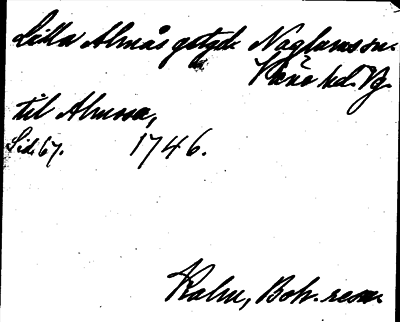 Lilla Almås gstgd. Naglums sn.
Väne hd. Vg.
til Almosa,
Sid. 67. 1746.
Kalm, Boh. resa